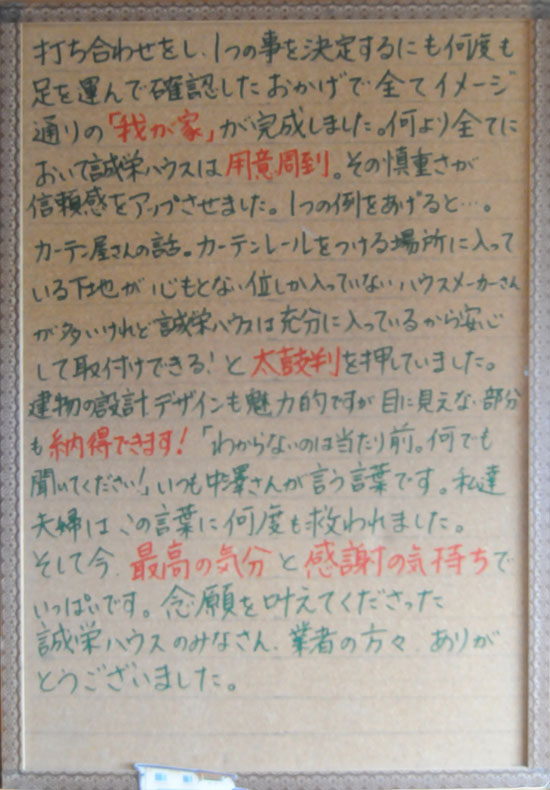 打ち合わせをし、1つの事を決定するにも何度も
足を運んで確認したおかげで全てイメージ
通りの「我が家」が完成しました。何より全てに
おいて誠栄ハウスは用意周到。その慎重さが
信頼感をアップさせました。1つの例をあげると…。
カーテン屋さんの話。カーテンレールをつける場所に入って
いる下地が心もとない位しか入っていないハウスメーカーさん
が多いけれど誠栄ハウスは充分に入っているから安心
して取付けできる!と太鼓判を押していました。
建物の設計、デザインも魅力的ですが目に見えない部分
も納得できます!「わからないのは当たり前。何でも
聞いてください!」いつも中澤さんが言う言葉です。私達
夫婦はこの言葉に何度も救われました。
そして今、最高の気分と感謝の気持ちで
いっぱいです。念願を叶えてくださった
誠栄ハウスのみなさん、業者の方々、ありが
とうございました。